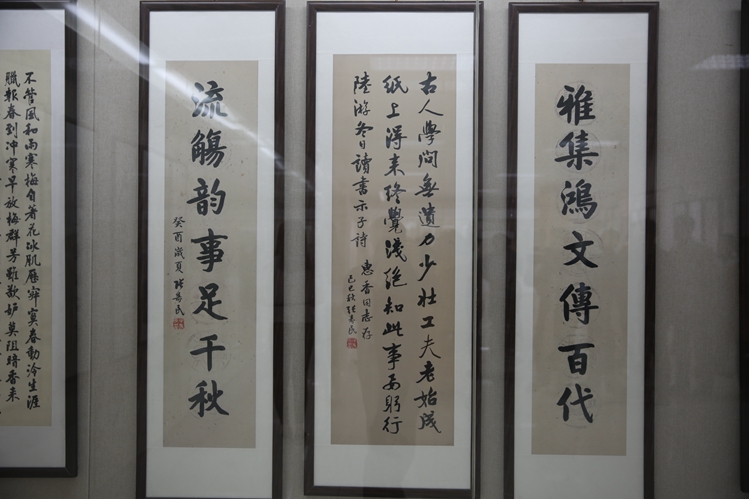 雅集鴻文傳百代
古人學問無遺力少壮工夫老始成
纸上得来終覺淺絕知此事要躬行
陸游冬日讀書示子詩 惠香同志存
己巳秋
流觴韵事足千秋
癸酉歲夏
不管風和雨寒梅自著花冰肌歷寂寞春動冷生涯
臘報春到冲寒早放梅群芳雖歎妒莫阻暗香来